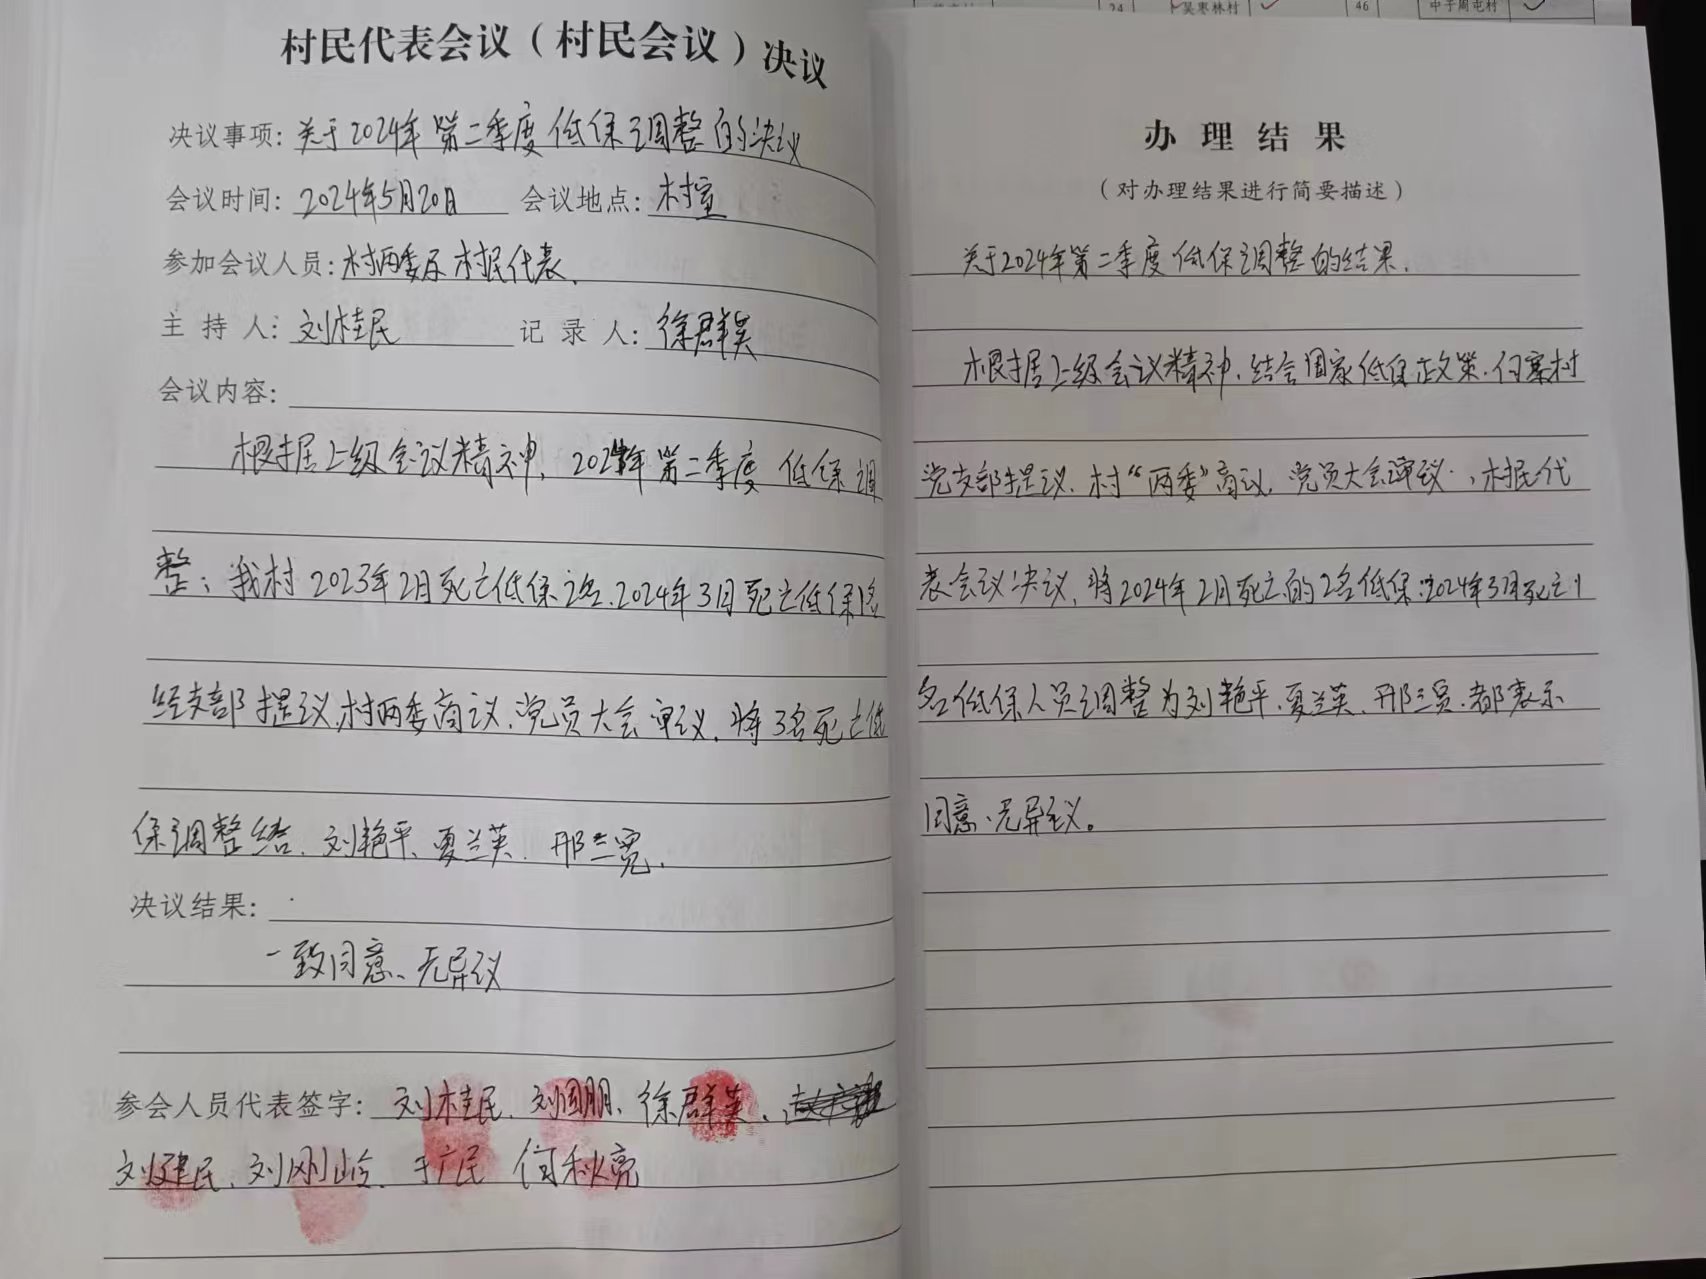 24
吴枣林村
46
中于周屯村
村民代表会议（村民会议）决议
决议事项：关于2024年第二季度低保调整的决议
会议时间：2024年5月20日 会议地点：村室
参加会议人员：村两委及村民代表.
主持人：刘桂民 记录人：徐群英
会议内容：
根据上级会议精神，2024年第二季度低保调
整：我村2023年2月死亡低保2名.2024年3月死亡低保1名
经支部提议，村两委商议，党员大会审议，将3名死亡低
保调整给，刘艳平、夏兰英、邢兰宽.
决议结果：
一致同意、无异议
参会人员代表签字：刘桂民、刘国朋、徐群英、
刘建民、刘刚岭、于广民 何秋亮
办理结果
（对办理结果进行简要描述）
关于2024年第二季度低保调整的结果.
根据上级会议精神，结合国家低保政策.何寨村
党支部提议，村“两委”商议，党员大会审议，村民代
表会议决议，将2024年2月死亡的2名低保，2024年3月死亡1
名低保人员调整为刘艳平、夏兰英、邢兰宽.都表示
同意、无异议。